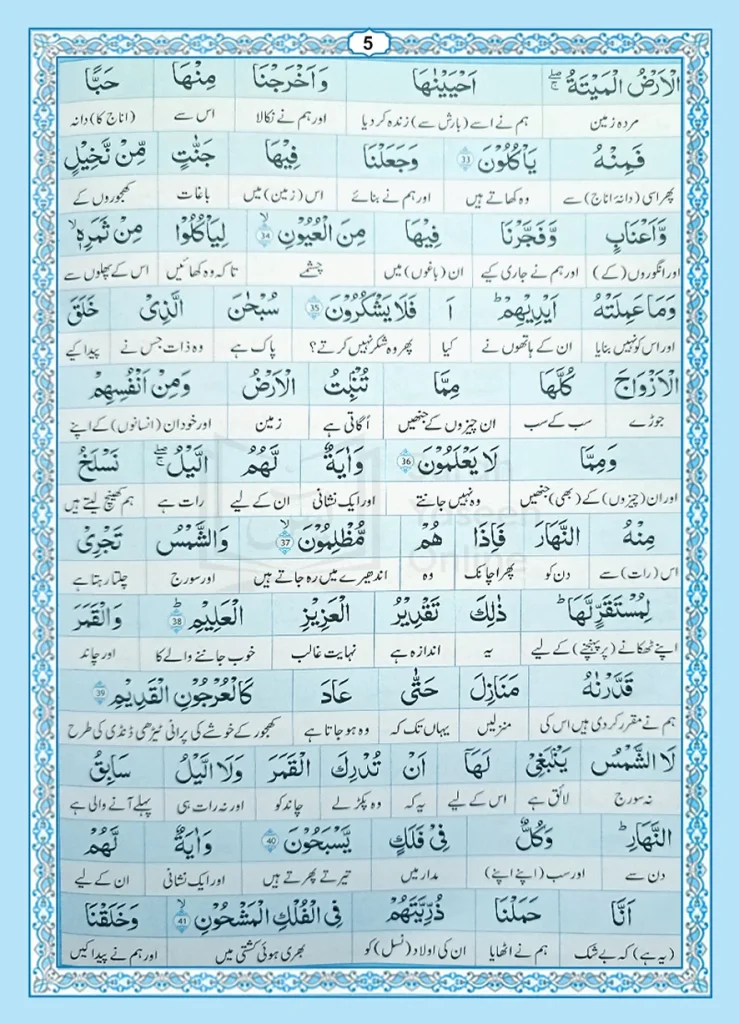 5
الْاَرْضُ الْمَيْتَةُ ۖۚ اَحْيَيْنٰهَا وَاَخْرَجْنَا مِنْهَا حَبًّا
مردہ زمین ہم نے اسے (بارش سے) زندہ کر دیا اور ہم نے نکالا اس سے (اناج کا) دانہ
فَمِنْهُ يَاْكُلُوْنَ 33 وَجَعَلْنَا فِيْهَا جَنّٰتٍ مِّنْ نَّخِيْلٍ
پھر اسی (دانۂ اناج) سے وہ کھاتے ہیں اور ہم نے بنائے اس (زمین) میں باغات کھجوروں کے
وَّاَعْنَابٍ وَّفَجَّرْنَا فِيْهَا مِنَ الْعُيُوْنِ ۙ 34 لِيَاْكُلُوْا مِنْ ثَمَرِهٖ ۙ
اور انگوروں (کے) اور ہم نے جاری کیے ان (باغوں) میں چشمے تاکہ وہ کھائیں اس کے پھلوں سے
وَمَا عَمِلَتْهُ اَيْدِيْهِمْ ؕ اَ فَلَا يَشْكُرُوْنَ 35 سُبْحٰنَ الَّذِيْ خَلَقَ
اور اس کو نہیں بنایا ان کے ہاتھوں نے کیا پھر وہ شکر نہیں کرتے؟ پاک ہے وہ ذات جس نے پیدا کیے
الْاَزْوَاجَ كُلَّهَا مِمَّا تُنْۢبِتُ الْاَرْضُ وَمِنْ اَنْفُسِهِمْ
جوڑے سب کے سب ان چیزوں کے جنھیں اُگاتی ہے زمین اور خود ان (انسانوں) کے اپنے
وَمِمَّا لَا يَعْلَمُوْنَ 36 وَاٰيَةٌ لَّهُمُ الَّيْلُ ۖۚ نَسْلَخُ
اور ان (چیزوں) کے (بھی) جنھیں وہ نہیں جانتے اور ایک نشانی ان کے لیے رات ہے ہم کھینچ لیتے ہیں
مِنْهُ النَّهَارَ فَاِذَا هُمْ مُّظْلِمُوْنَ ۙ 37 وَالشَّمْسُ تَجْرِيْ
اس (رات) سے دن کو پھر اچانک وہ اندھیرے میں رہ جاتے ہیں اور سورج چلتا رہتا ہے
لِمُسْتَقَرٍّ لَّهَا ؕ ذٰلِكَ تَقْدِيْرُ الْعَزِيْزِ الْعَلِيْمِ ؕ 38 وَالْقَمَرَ
اپنے ٹھکانے (پر پہنچنے) کے لیے یہ اندازہ ہے نہایت غالب خوب جاننے والے کا اور چاند
قَدَّرْنٰهُ مَنَازِلَ حَتّٰى عَادَ كَالْعُرْجُوْنِ الْقَدِيْمِ 39
ہم نے مقرر کر دی ہیں اس کی منزلیں یہاں تک کہ وہ ہو جاتا ہے کھجور کے خوشے کی پرانی ٹیڑھی ڈنڈی کی طرح
لَا الشَّمْسُ يَنْۢبَغِيْ لَهَاۤ اَنْ تُدْرِكَ الْقَمَرَ وَلَا الَّيْلُ سَابِقُ
نہ سورج لائق ہے اس کے لیے یہ کہ وہ پکڑ لے چاند کو اور نہ رات ہی پہلے آنے والی ہے
النَّهَارِ ؕ وَكُلٌّ فِيْ فَلَكٍ يَّسْبَحُوْنَ 40 وَاٰيَةٌ لَّهُمْ
دن سے اور سب (اپنے اپنے) مدار میں تیرتے پھرتے ہیں اور ایک نشانی ان کے لیے
اَنَّا حَمَلْنَا ذُرِّيَّتَهُمْ فِي الْفُلْكِ الْمَشْحُوْنِ ۙ 41 وَخَلَقْنَا
(یہ ہے) کہ بے شک ہم نے اٹھایا ان کی اولاد (نسل) کو بھری ہوئی کشتی میں اور ہم نے پیدا کیں